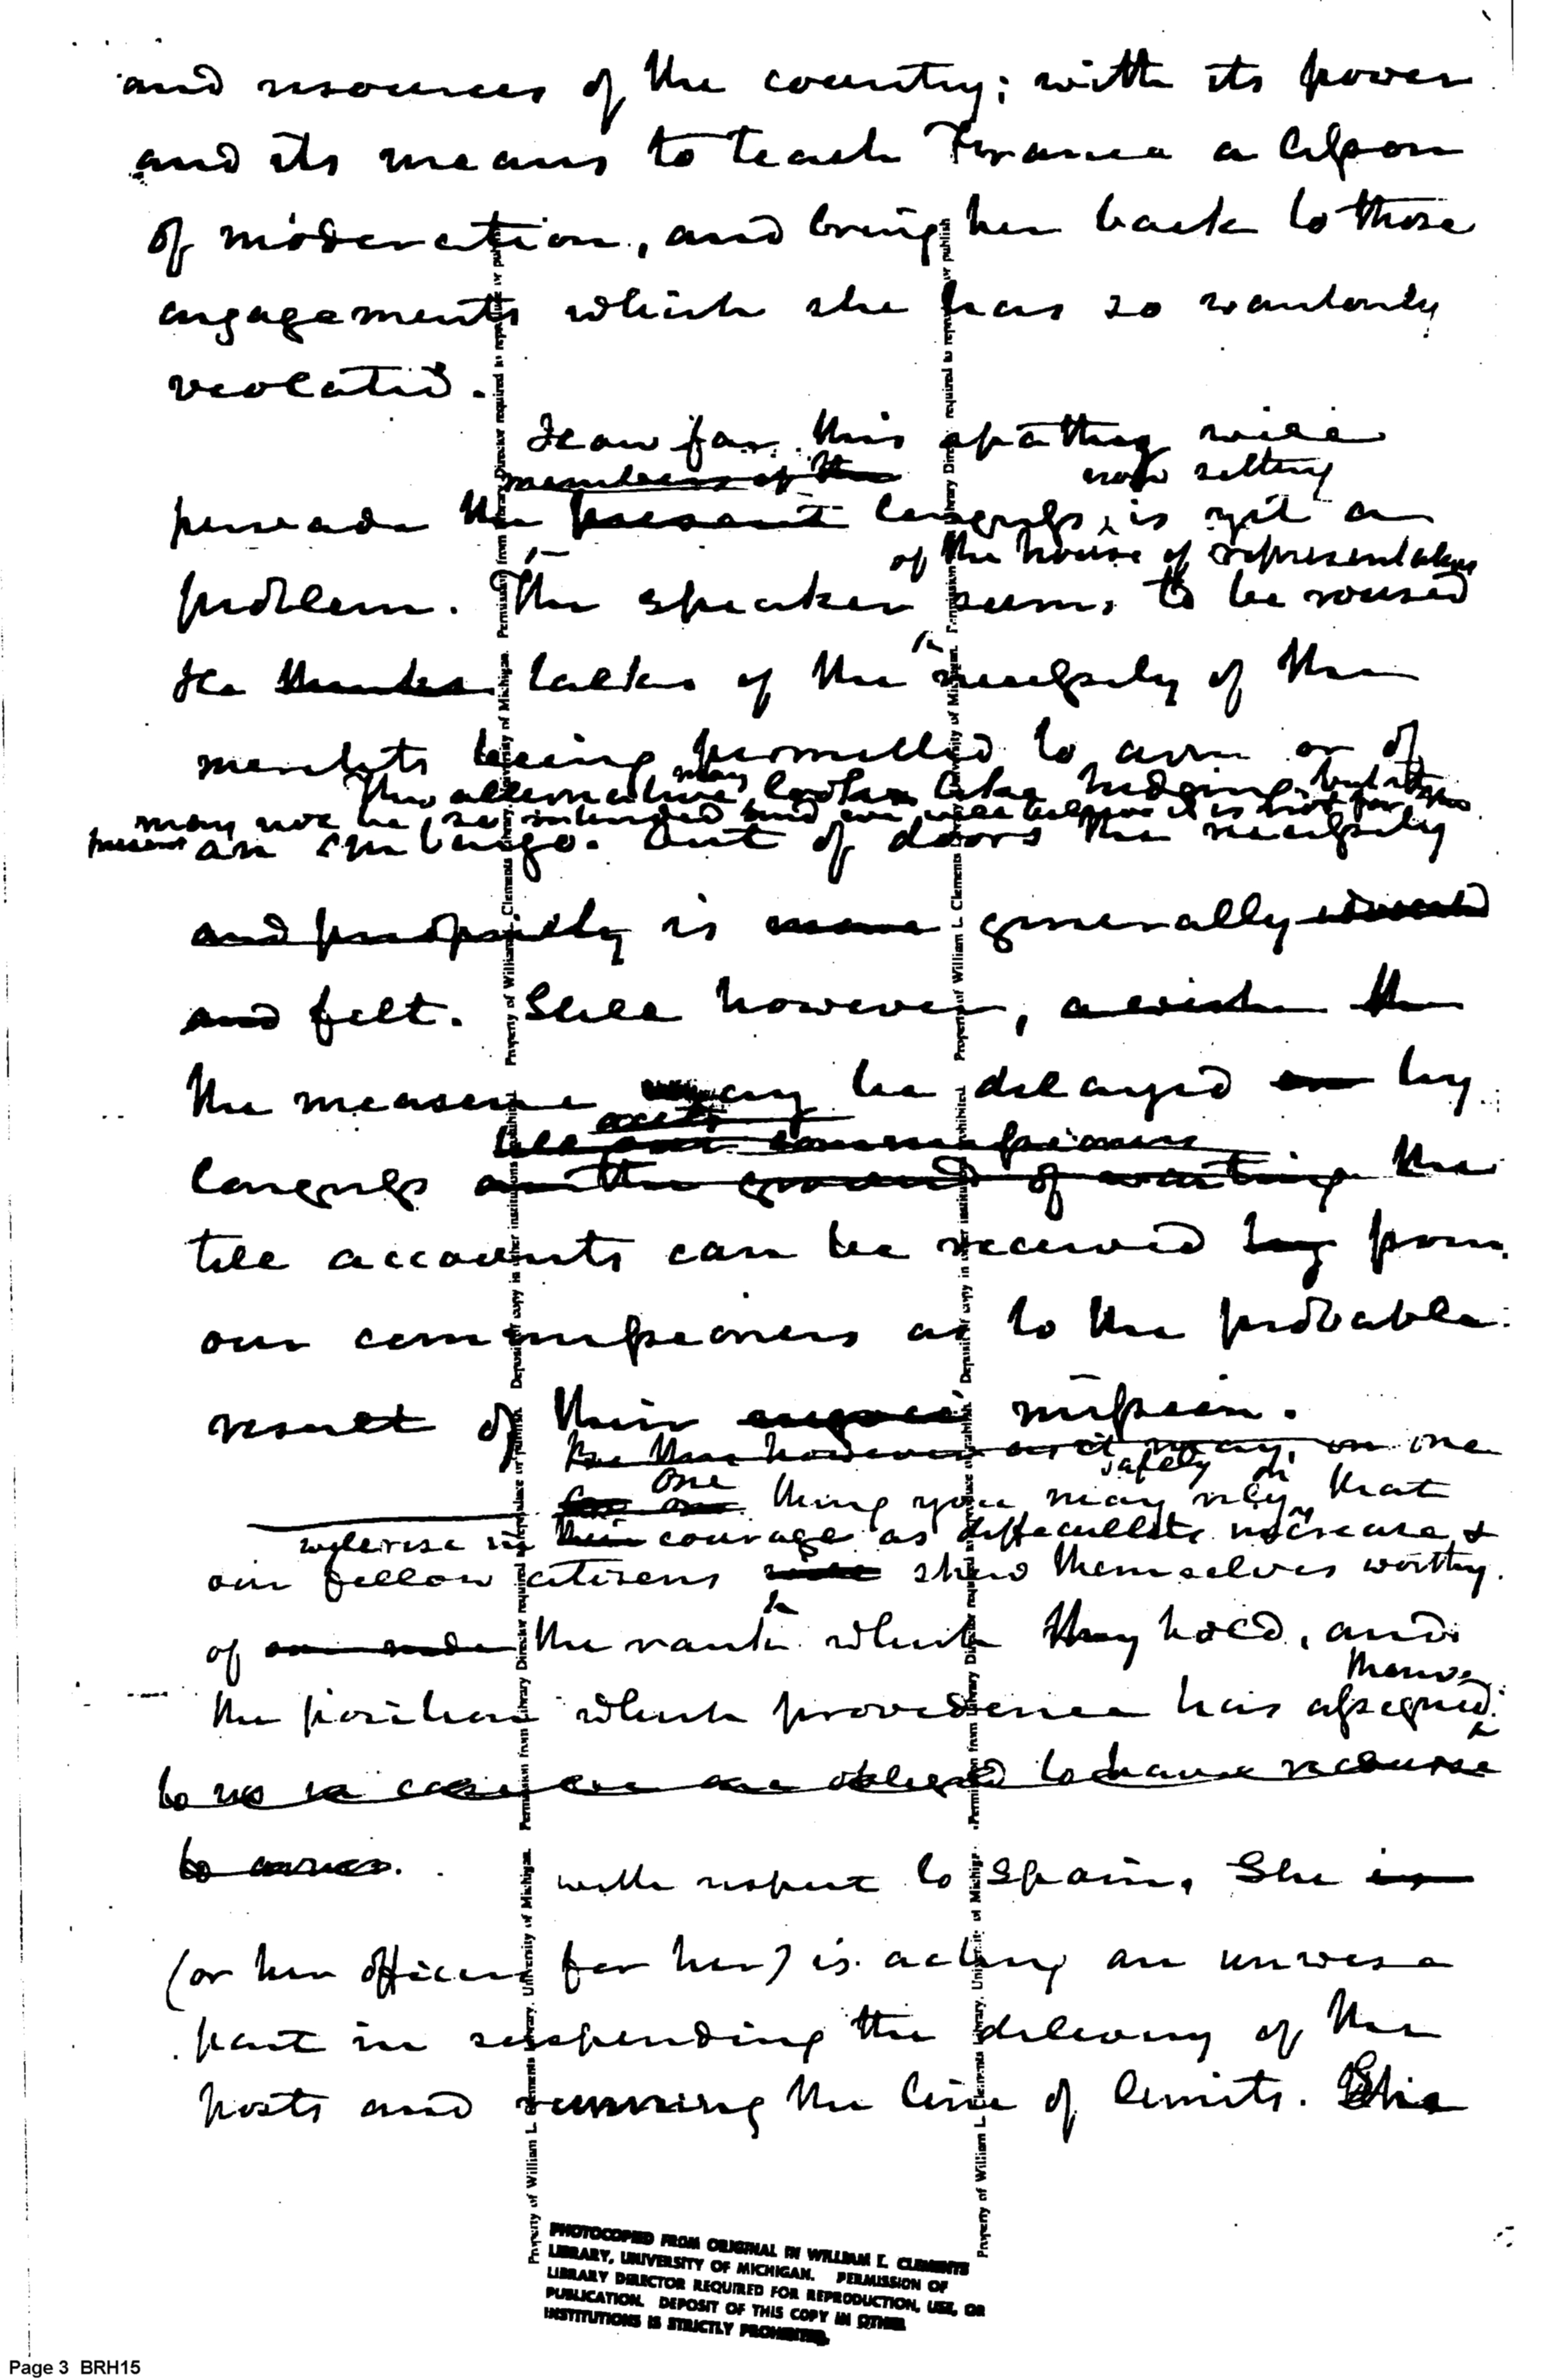 and resources of the country; with its power
and its means to teach France a lesson
of moderation, and bring her back to those
engagements which she has so wantonly
violated.
How far this apathy will
members of the now sitting
pervade the present Congress, is yet a
of the house of representatives
problem. The speaker seems to be roused
He thinks talks of the necessity of the
merchts being permitted to arm or of
This alternative may looks like hedging, but it
may not be so intended and we will believe it is not for the
present an embargo. Out of doors the necessity
and propriety is more generally
and felt. Still however, a wish the
the measure may be delayed on by
till our commissioners
Congress on the ground of waiting the
till accounts can be received by from
our commissioners as to the probable
result of their mission.
Be this however as it may, on one
one safely on
for one thing you may rely, that
will rise in their courage as difficulties increase, &
our fellow citizens will shew themselves worthy
of the rank which they hold, and
them
the position which providence has assigned
to us in case we are obliged to have recourse
to arms.
with respect to Spain, She is
(or her officers for her) is acting an unwise
part in suspending the delivery of the
posts and running the line of limits. She
Property of William L. Clements Library, University of Michigan. Permission from Library Director required to reproduce or publish. Deposit of copy in other institutions prohibited.
Property of William L. Clements Library, University of Michigan. Permission from Library Director required to reproduce or publish. Deposit of copy in other institutions prohibited.
PHOTOCOPIED FROM ORIGINAL IN WILLIAM L. CLEMENTS
LIBRARY, UNIVERSITY OF MICHIGAN. PERMISSION OF
LIBRARY DIRECTOR REQUIRED FOR REPRODUCTION, USE, OR
PUBLICATION. DEPOSIT OF THIS COPY IN OTHER
INSTITUTIONS IS STRICTLY PROHIBITED.
Page 3 BRH15